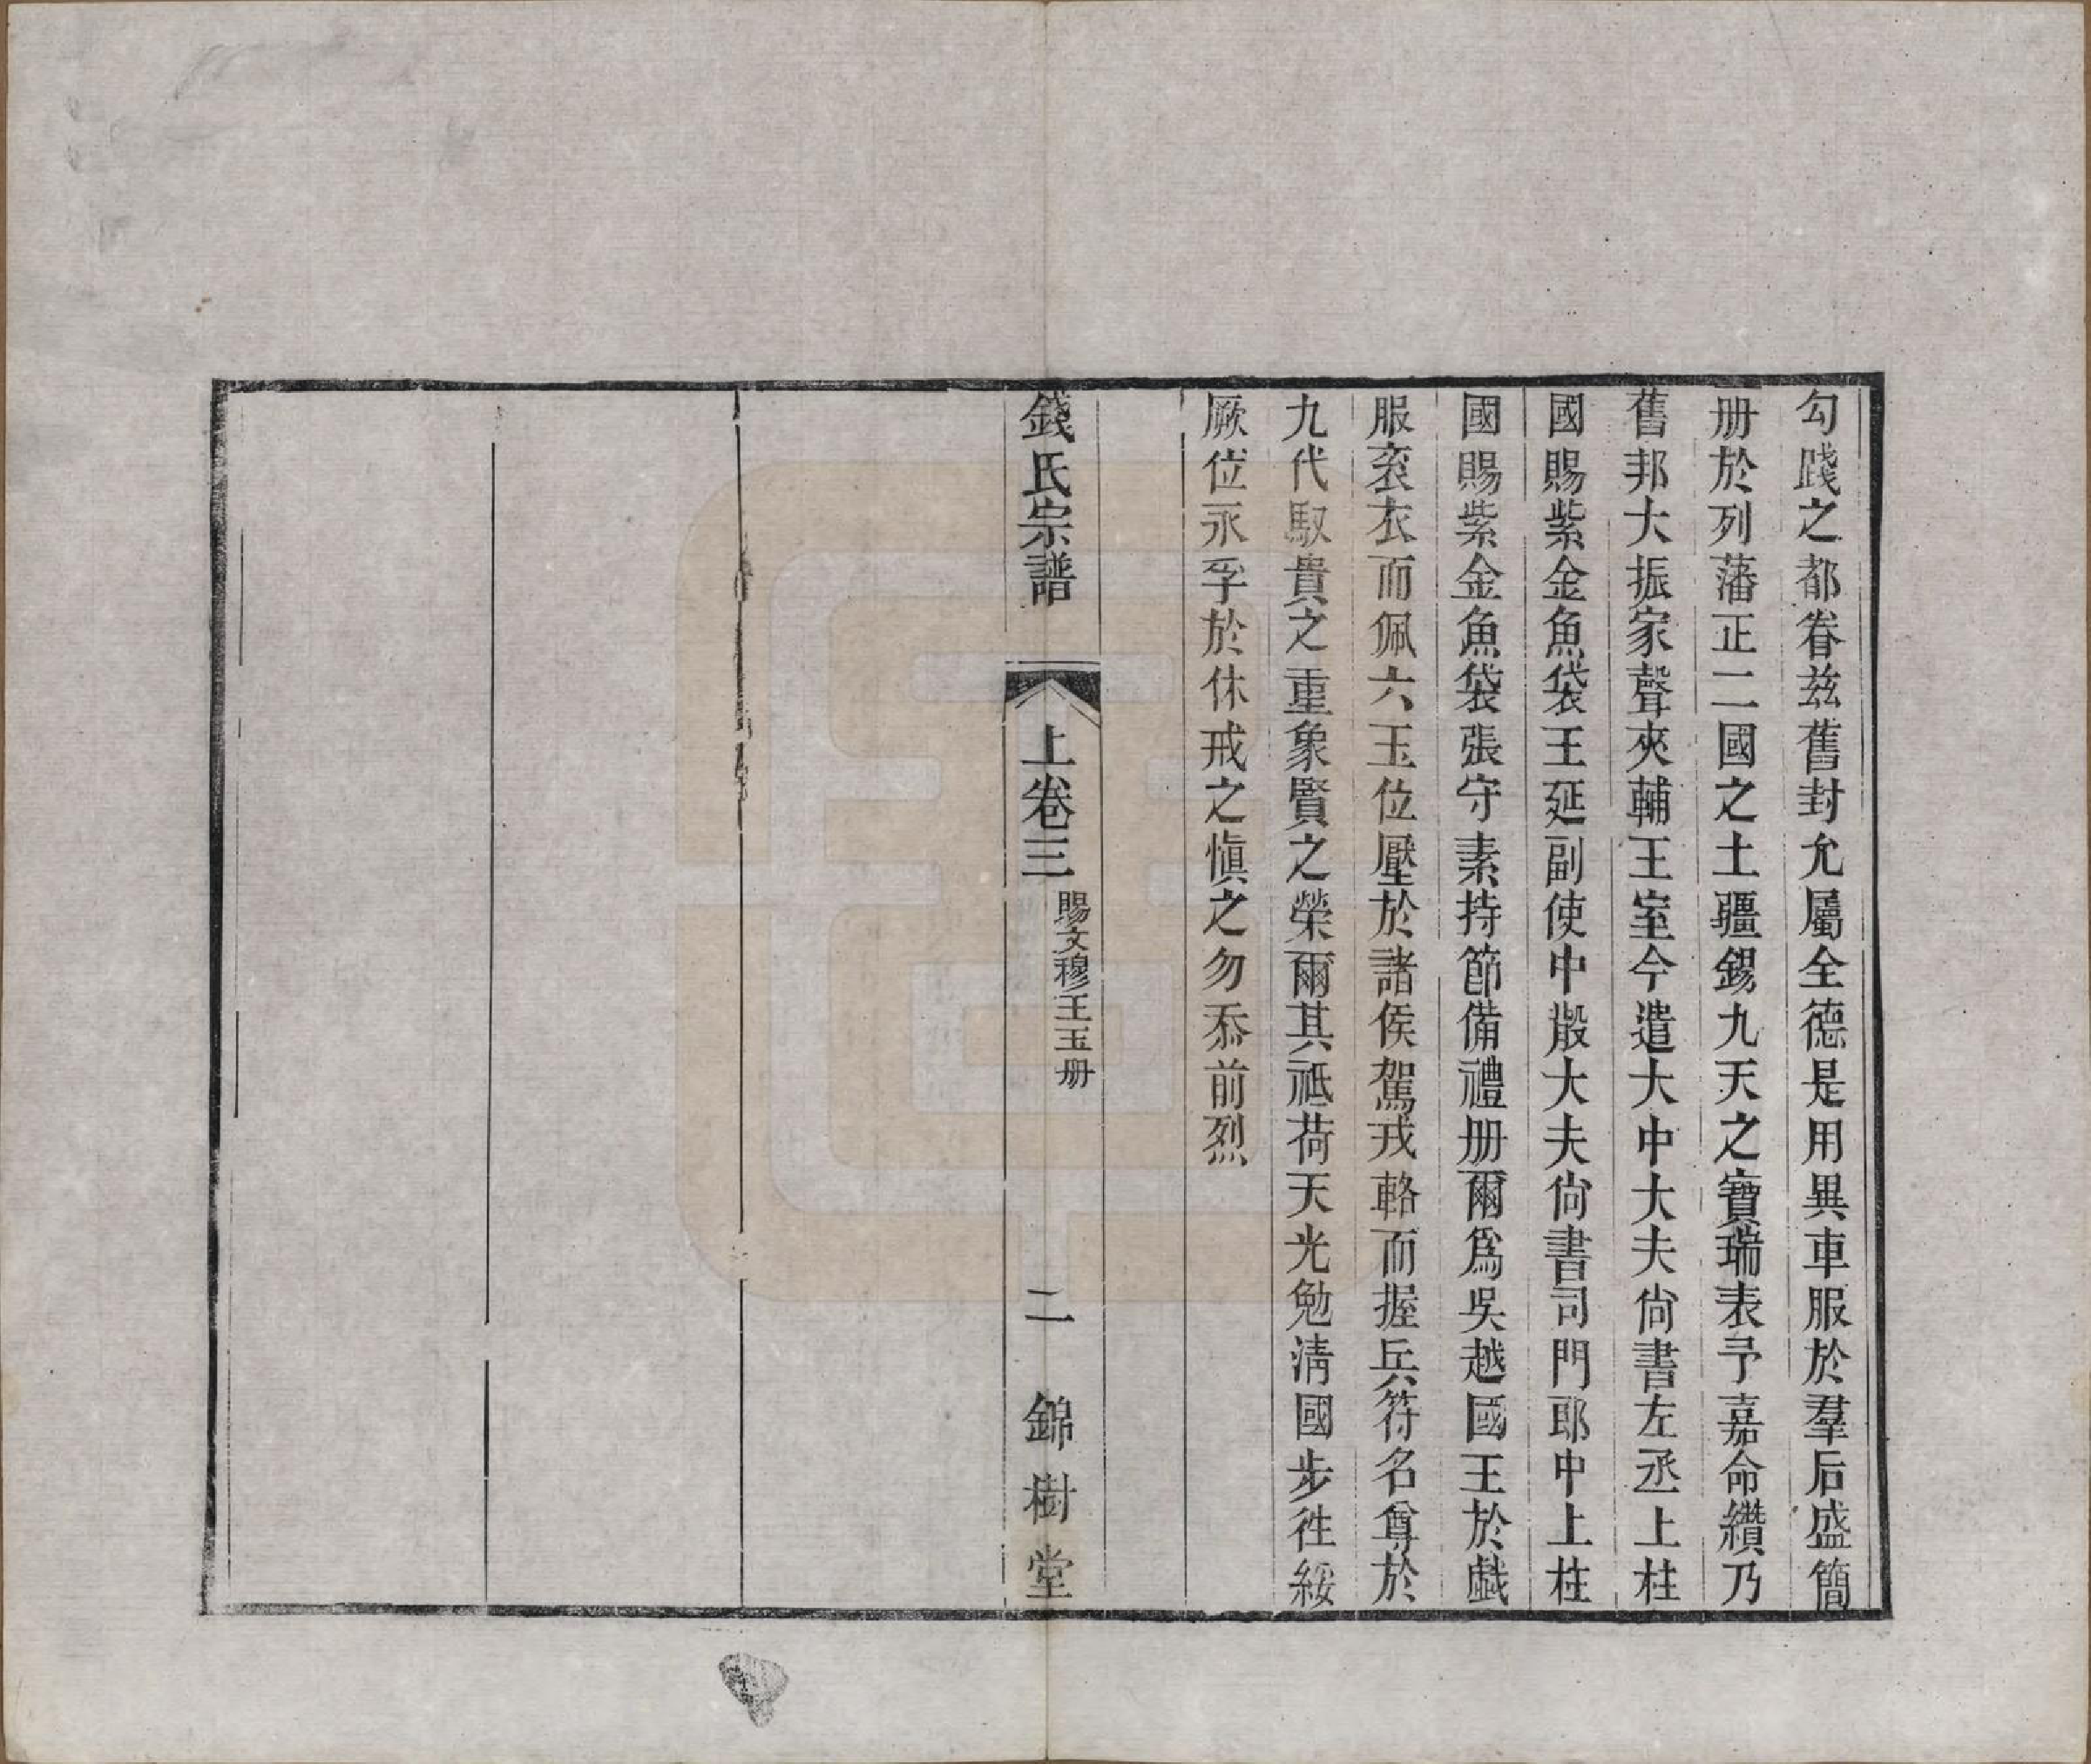 勾踐之都眷茲舊封允屬全德是用異車服於羣后盛簡
册於列藩正二國之土疆錫九天之寶瑞表予嘉命纘乃
舊邦大振家聲夾輔王室今遣大中大夫尙書左丞上柱
國賜紫金魚袋王延副使中散大夫尙書司門郎中上柱
國賜紫金魚袋張守素持節備禮册爾爲吳越國王於戱
服衮衣而佩六玉位壓於諸侯駕戎輅而握兵符名尊於
九代馭貴之重象賢之榮爾其祗荷天光勉淸國步徃綏
厥位永孚於休戒之愼之勿忝前烈
錢氏宗譜
上卷三
賜文穆王玉册
二
錦樹堂